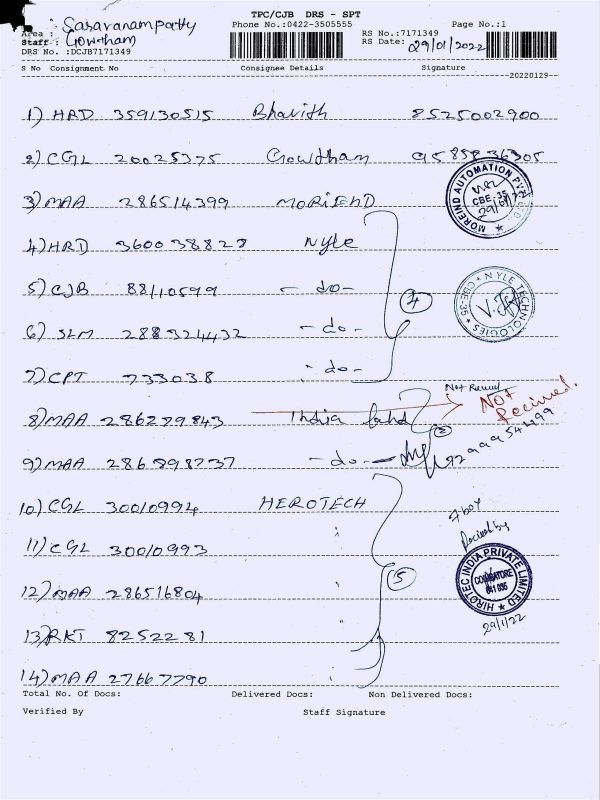 TPC/CJB DRS - SPT
Area : Saravanampatty Phone No.:0422-3505555 Page No.:1
Staff : Gowtham RS No.:7171349
DRS No. :DCJB7171349 RS Date: 29/01/2022
S No Consignment No Consignee Details Signature
20220129
1) HRD 359130515 Bhavith 8525002900
2) CGL 20025375 Gowtham 9585836305
3) MAA 286514399 MORIEND
MOREIND AUTOMATION PVT CBE-35
4) HRD 360038828 Nyle
5) CJB 88110599 - do -
4
NYLE TECHNOLOGIES CBE-35
6) SLM 288324432 - do -
7) CPT 733038 - do -
NOT Recived.
8) MAA 286279843 India land
2
9) MAA 286898737 - do -
10) CGL 30010994 HEROTECH
11) CGL 30010993 "
5
HIROTEC INDIA PRIVATE LIMITED COIMBATORE 641 035
12) MAA 286516804 "
29/1/22
13) RKT 8252281 "
14) MAA 27667790
Total No. Of Docs: Delivered Docs: Non Delivered Docs:
Verified By Staff Signature